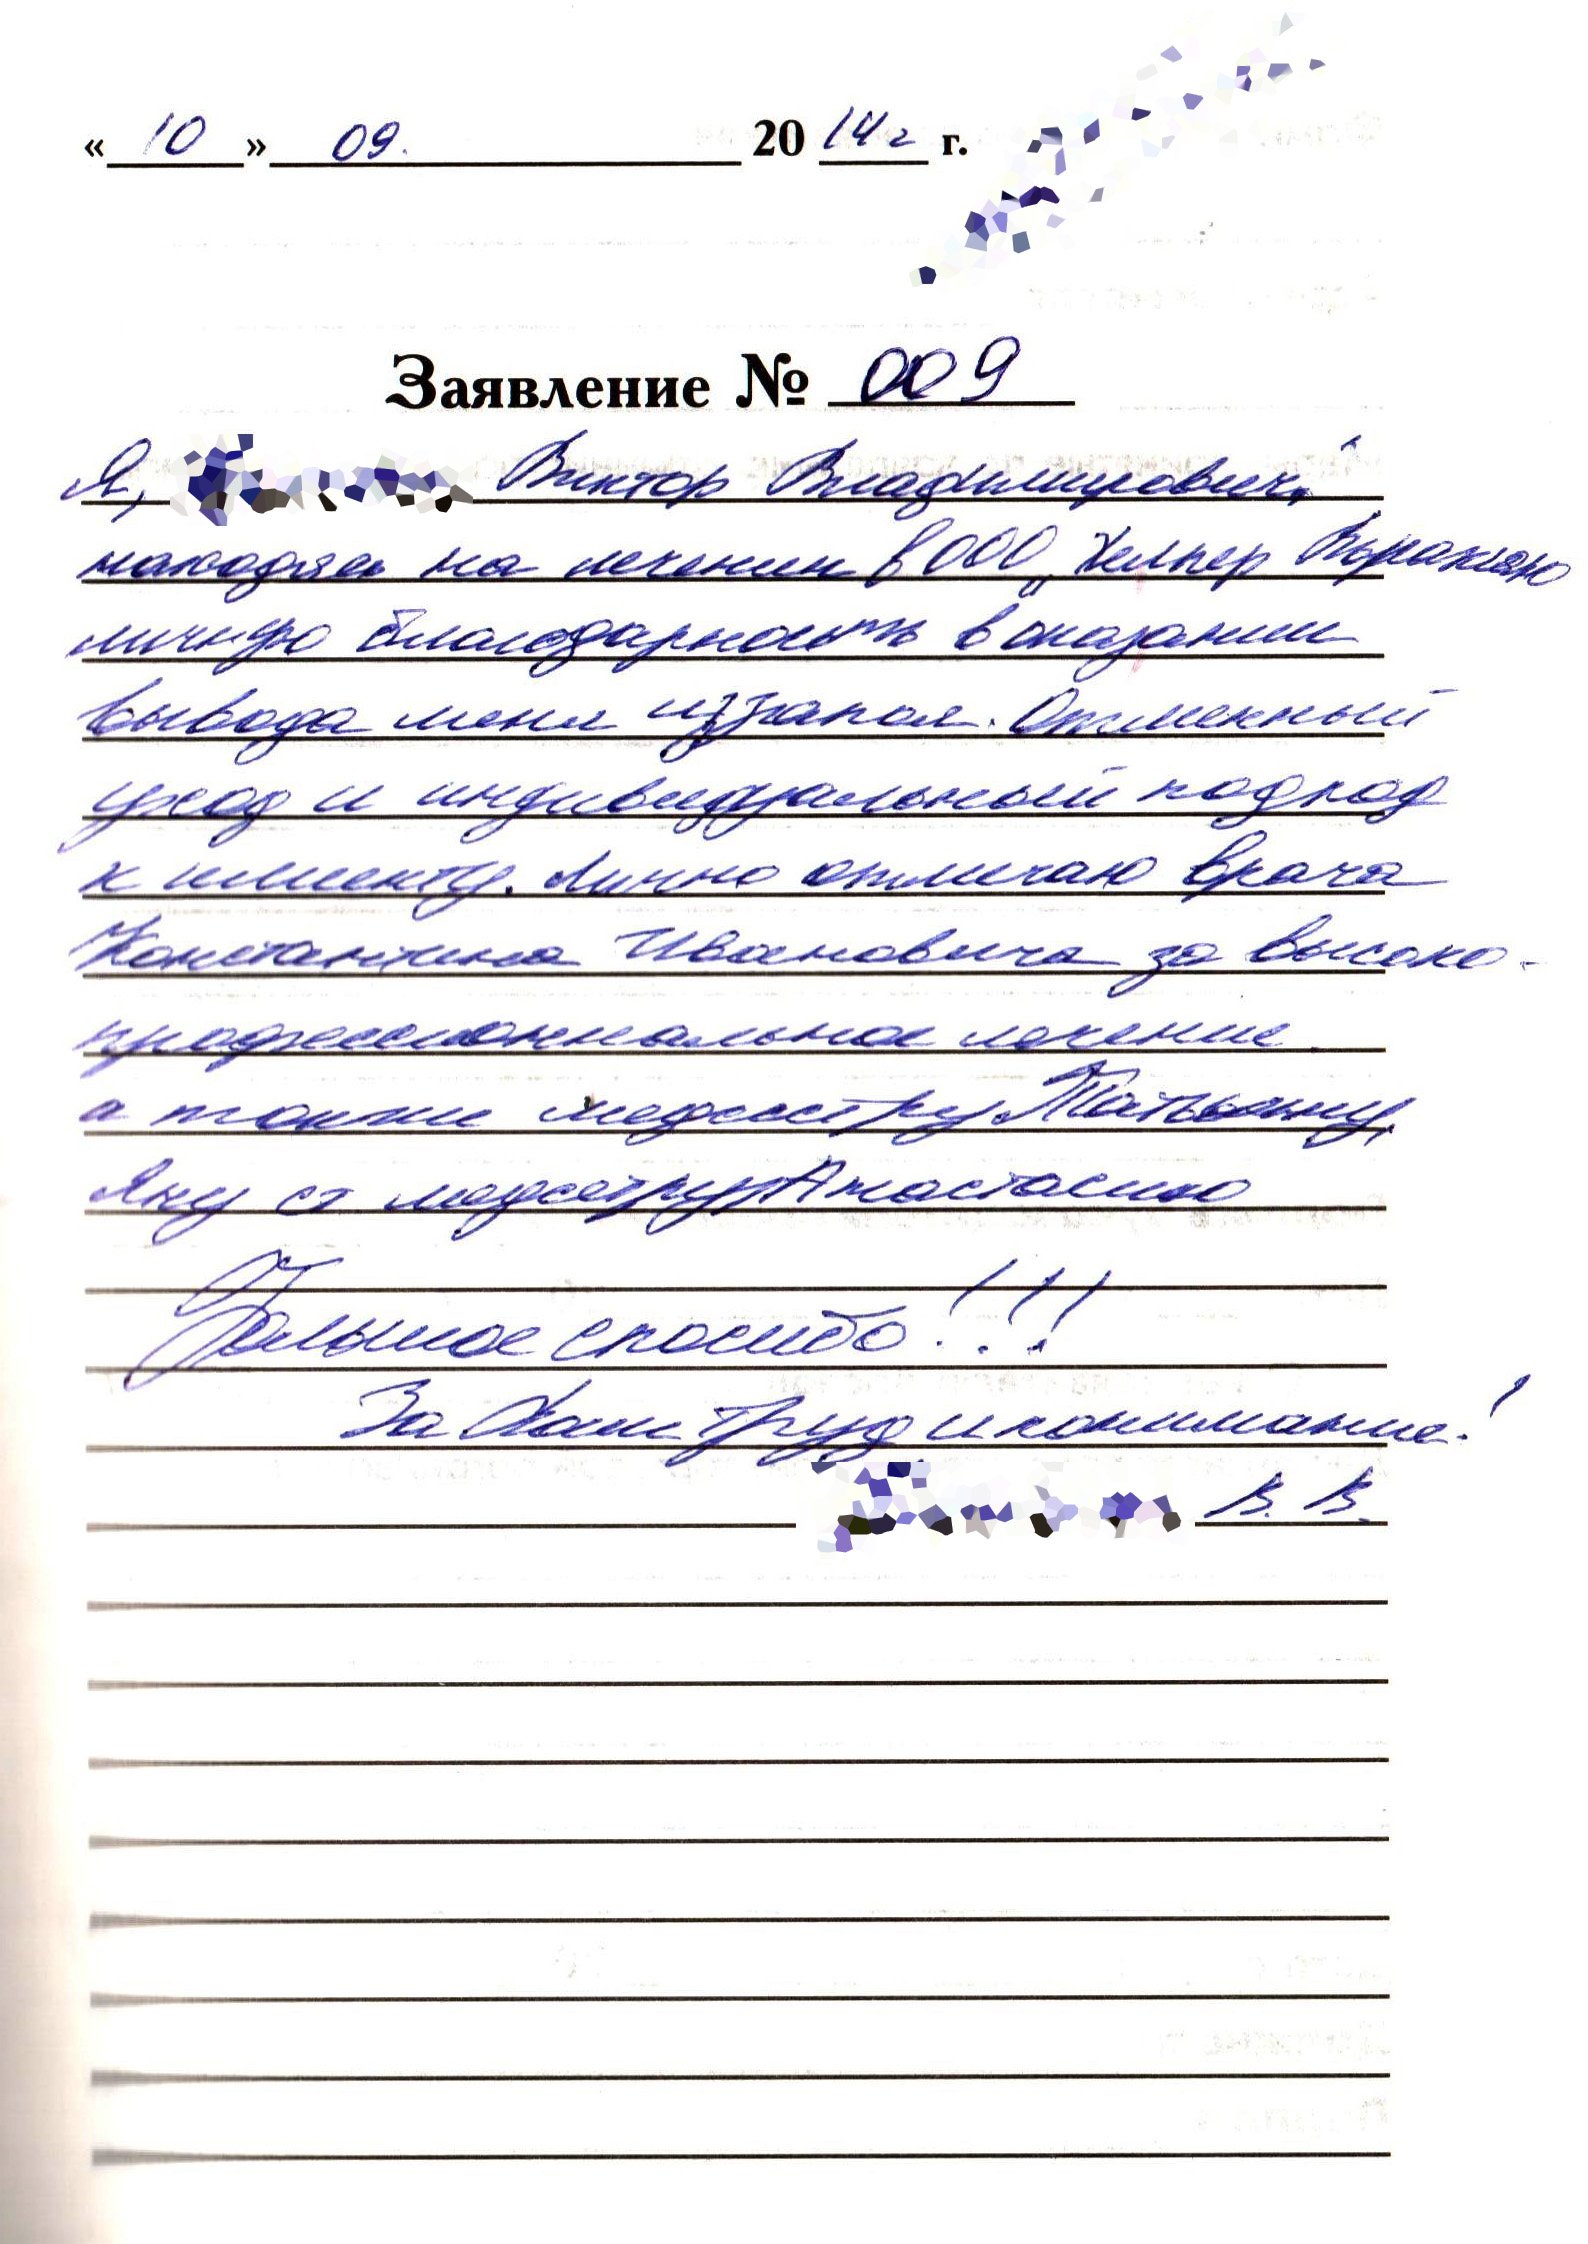 « 10 » 09. 20 14 г г.
Заявление № 009
Я, Виктор Владимирович,
находясь на лечении в ООО „Хелпер" Выражаю
личную благодарность в оказании
вывода меня из запоя. Отменный
уход и индивидуальный подход
к клиенту. Лично отмечаю врача
Константина Ивановича за высоко-
профессиональное лечение
а также медсестру Татьяну,
Яну ст медсестру Анастасию
Большое спасибо!!!
За Ваш труд и понимание!
В. В.